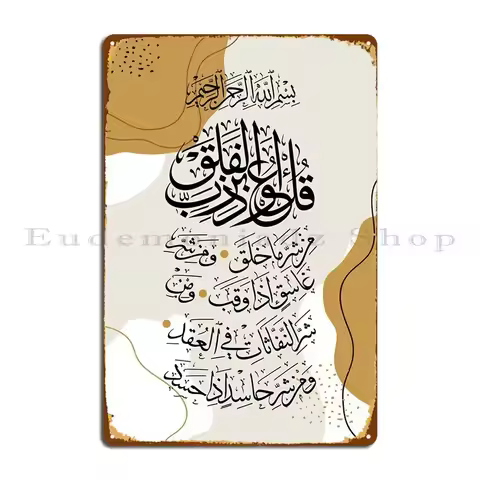 بِسْمِ اللَّهِ الرَّحْمَنِ الرَّحِيمِ
قُلْ أَعُوذُ بِرَبِّ الْفَلَقِ
مِن شَرِّ مَا خَلَقَ وَمِن شَرِّ
غَاسِقٍ إِذَا وَقَبَ وَمِن
شَرِّ النَّفَّاثَاتِ فِي الْعُقَدِ
وَمِن شَرِّ حَاسِدٍ إِذَا حَسَدَ
Eudemoniarz Shop